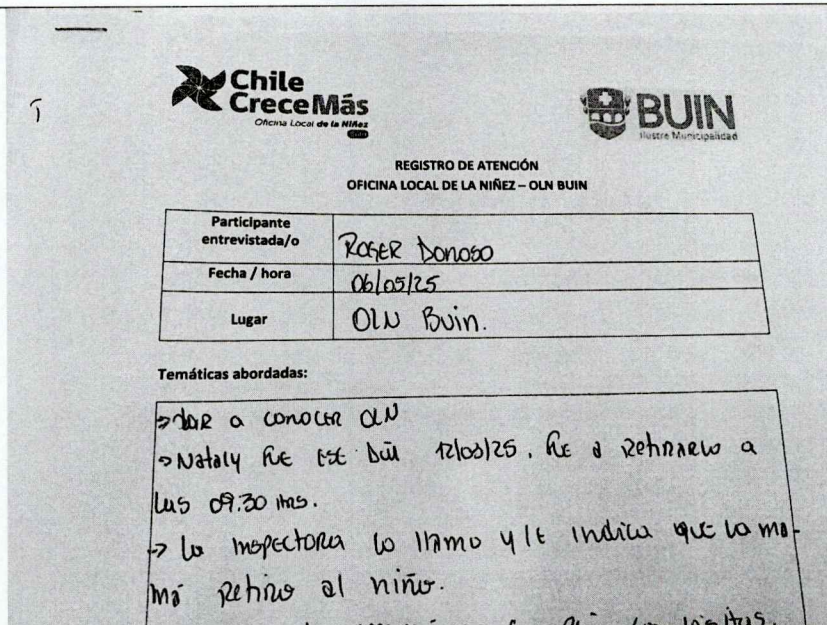 Chile
CreceMás
Oficina Local de la Niñez
BUIN
Ilustre Municipalidad
REGISTRO DE ATENCIÓN
OFICINA LOCAL DE LA NIÑEZ – OLN BUIN
Participante
entrevistada/o
ROGER DONOSO
Fecha / hora
06/05/25
Lugar
OLN Buin.
Temáticas abordadas:
→ DAR a conocer OLN
→ Nataly fue ESE DÍA 12/03/25. fue a Retirarlo a
las 09.30 Hrs.
→ la inspectora lo llamo y le indica que la ma-
má Retiro al niño.